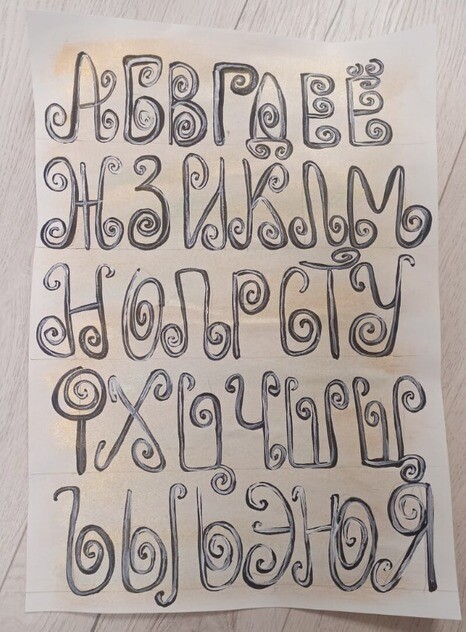 АБВГДЕЁ
ЖЗИКЛМ
НОПРСТУ
ФХЦЧШЩ
ЪЫЬЭЮЯ